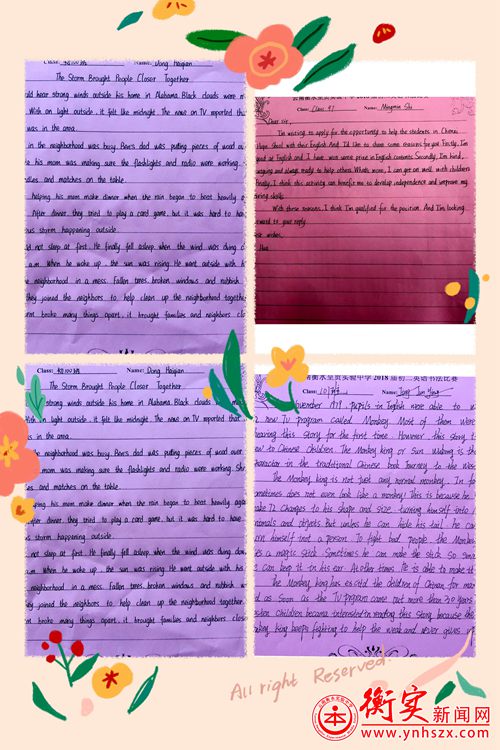 Class: 初100班 Name: Dong Haiqian
The Storm Brought People Closer Together
hear strong winds outside his home in Alabama. Black clouds were m
With on light outside, it felt like midnight. The news on TV reported that
was in the area.
in the neighborhood was busy. Ben's dad was putting pieces of wood over
his mom was making sure the flashlights and radio were working.
and matches on the table.
helping his mom make dinner when the rain began to beat heavily a
After dinner, they tried to play a card game, but it was hard to have
ous storm happening outside.
not sleep at first. He finally fell asleep when the wind was dying d
a.m. When he woke up, the sun was rising. He went outside with his
neighborhood in a mess. Fallen trees, broken windows and rubbish
they joined the neighbors to help clean up the neighborhood together
broke many things apart, it brought families and neighbors clos
Class: Class 91 Name: Mingmin Shi
Dear Sir,
I'm writing to apply for the opportunity to help the students in
Hope School with their English. And I'd like to show some reasons for you. Firstly, I'm
good at English and I have won some prize in English contests. Secondly, I'm kind,
and always ready to help others. What's more, I can get on well with children
Finally, I think this activity can benefit me to develop independence and improve my
skills.
With these reasons, I think I'm qualified for the position. And I'm looking
forward to your reply.
wishes,
Class: 初100班 Name: Dong Haiqian
The Storm Brought People Closer Together
strong winds outside his home in Alabama. Black clouds
With on light outside, it felt like midnight. The news on TV reported that
in the area.
the neighborhood was busy. Ben's dad was putting pieces of wood over
mom was making sure the flashlights and radio were working. She
and matches on the table.
helping his mom make dinner when the rain began to beat heavily again
After dinner, they tried to play a card game, but it was hard to have
storm happening outside.
not sleep at first. He finally fell asleep when the wind was dying down
a.m. When he woke up, the sun was rising. He went outside with his
neighborhood in a mess. Fallen trees, broken windows and rubbish
they joined the neighbors to help clean up the neighborhood together
broke many things apart, it brought families and neighbors closer
南衡水呈贡实验中学 2018 届初二英语书法比赛
Class: Name:
November 1979, pupils in English were able to w
new TV program called Monkey. Most of them were
hearing this story for the first time. However, this story
new to Chinese Children. The Monkey king or Sun Wukong is the
character in the traditional Chinese book Journey to the West
The Monkey king is not just any normal monkey. In fa
sometimes does not even look like a monkey! This is because he
make 72 changes to his shape and size, turning himself into
animals and objects. But unless he can hide his tail, he can
turn himself into a person. To fight bad people, the Monkey
uses a magic stick. Sometimes he can make the stick so small
can keep it in his ear. At other times, he is able to make it
The Monkey king has excited the Children of China for man
as soon as the TV program came out more than 30 years
Children became interested in reading this story because
king keeps fighting to help the weak and never gives
All right Reserved.
衡实新闻网
www.ynhszx.com